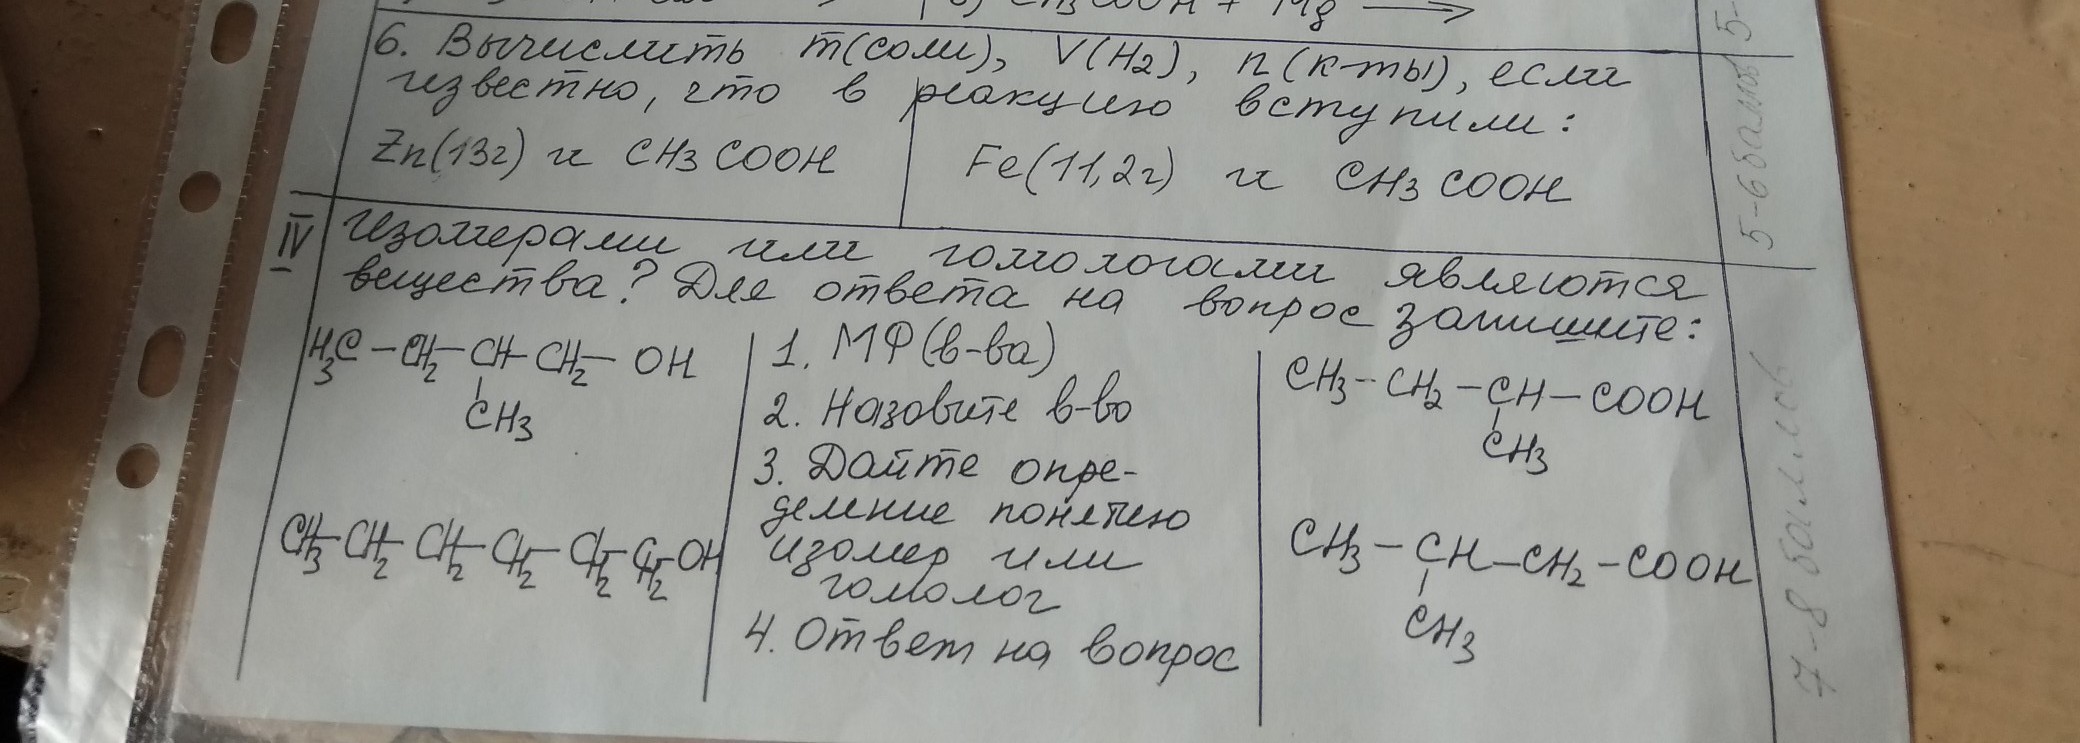 б) CH3COOH + Mg ⟶
6. Вычислить m(соли), V(H2), n(к-ты), если
известно, что в реакцию вступили:
Zn(13г) и CH3COOH
Fe(11,2г) и CH3COOH
5-6 баллов
IV Изомерами или гомологами являются
вещества? Для ответа на вопрос запишите:
H3C – CH2 – CH – CH2 – OH
CH3
CH3 – CH2 – CH2 – CH2 – CH2 – CH2 – OH
1. МФ(в-ва)
2. Назовите в-во
3. Дайте опре-
деление понятию
изомер или
гомолог
4. Ответ на вопрос
CH3 – CH2 – CH – COOH
CH3
CH3 – CH – CH2 – COOH
CH3
7-8 баллов